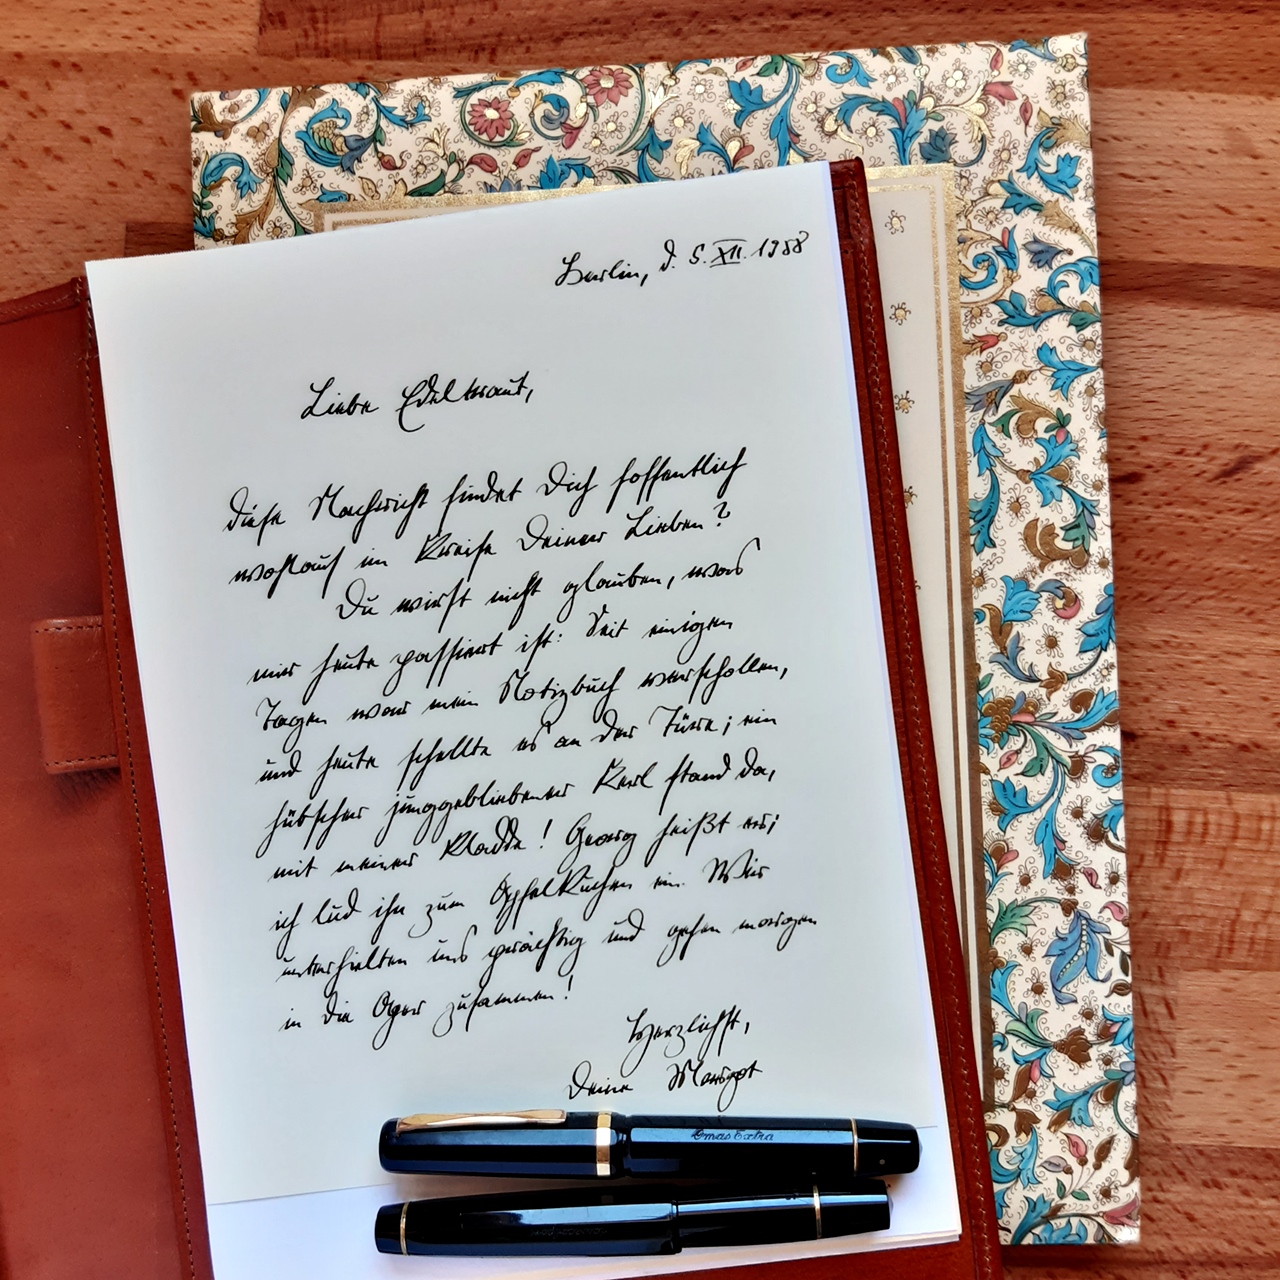 Berlin, d. 5. XII. 1988
Liebe Edeltraut,
diese Nachricht findet Dich hoffentlich
wohlauf im Kreise Deiner Lieben?
Du wirst nicht glauben, was
mir heute passiert ist: Seit einigen
Tagen war mein Notizbuch verschollen,
und heute schellte es an der Türe; ein
hübscher junggebliebener Kerl stand da,
mit meiner Kladde! Georg heißt er;
ich lud ihn zum Apfelkuchen ein. Wir
unterhielten uns prächtig und gehen morgen
in die Oper zusammen!
Herzlichst,
Deine Margot
Omas Extra